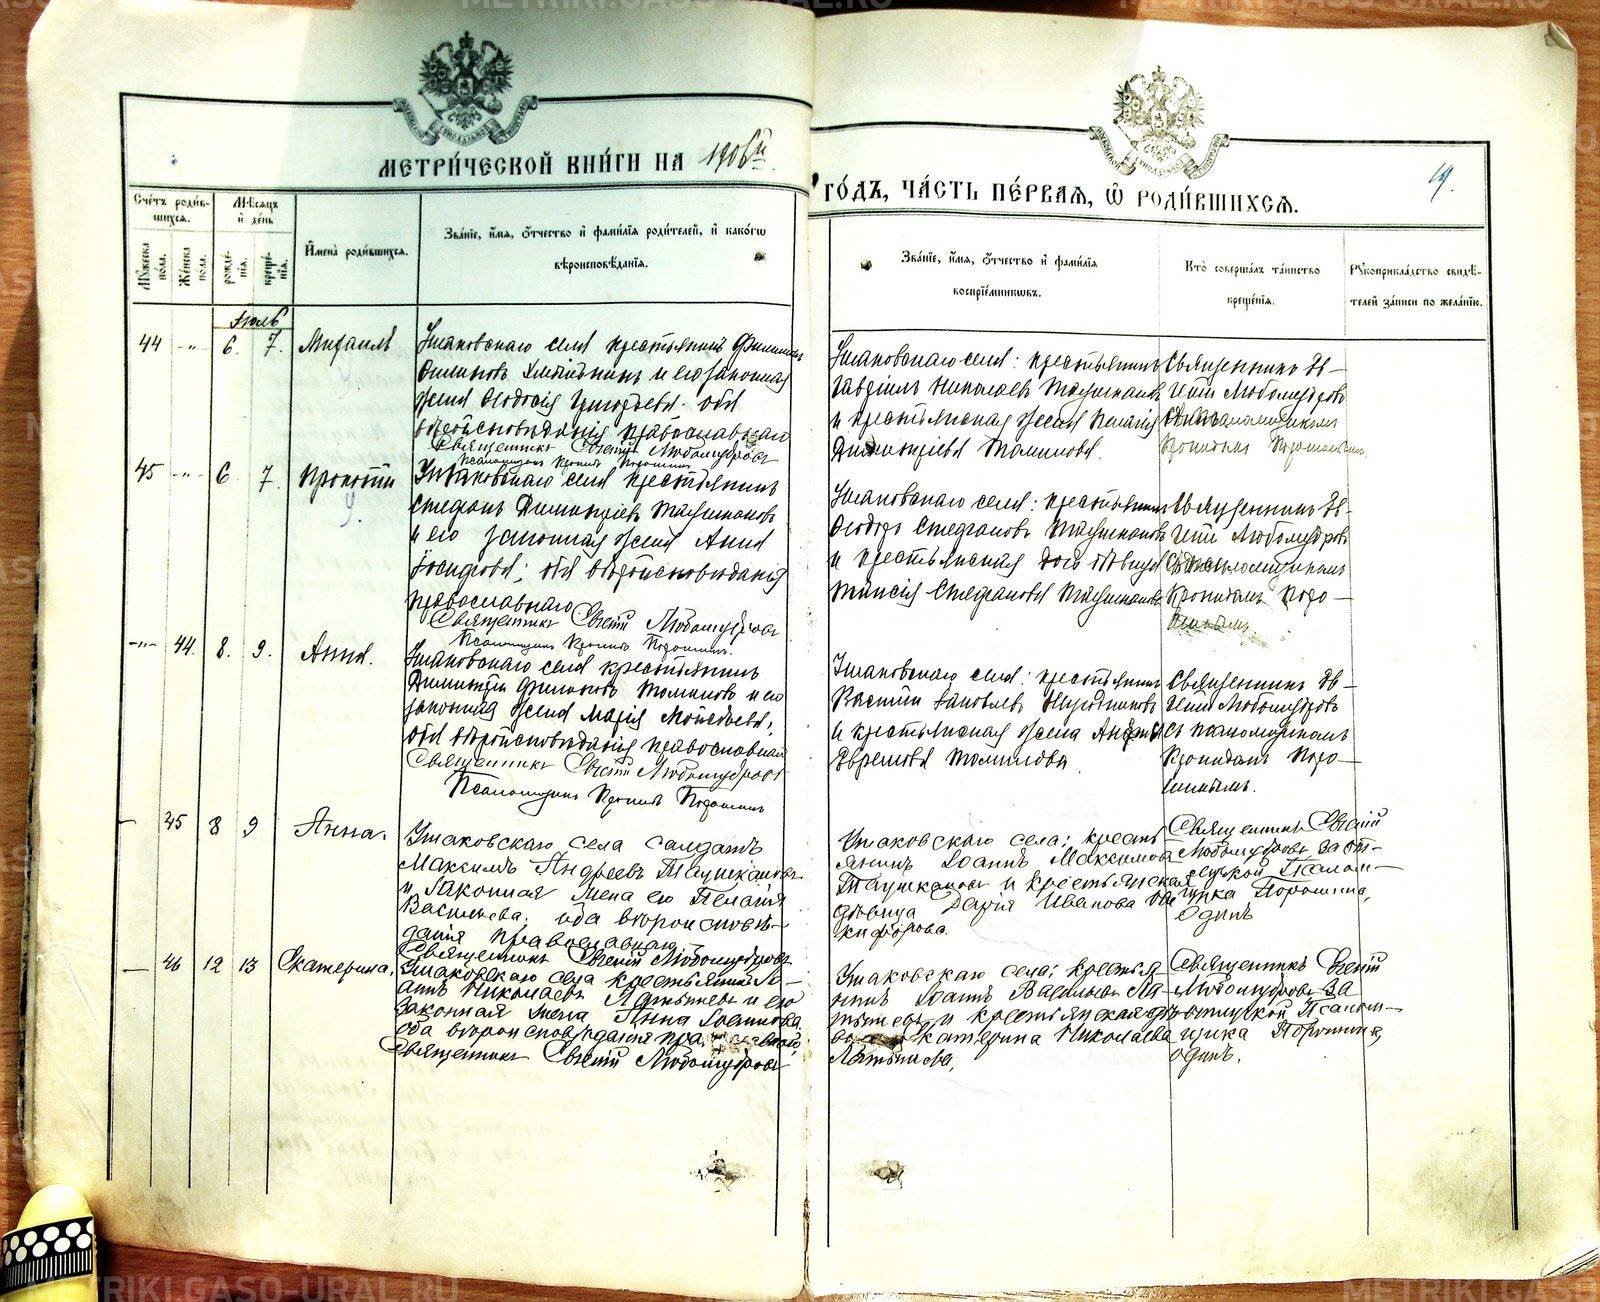 METRIKI.GASO-URAL.RU
МЕТРИ́ЧЕСКОЙ КНИ́ГИ НА 1906й
ГО́ДЪ, ЧА́СТЬ ПЕ́РВАЯ, Ѿ РОДИ́ВШИХСЯ.
19.
Сче́тъ роди́в-
шихся.
Мѣсяцъ
и де́нь
Му́жеска по́ла.
Же́нска по́ла.
рожде́-
нія.
креще́-
нія.
Имена̀ роди́вшихся.
Зва́ніе, и́мя, о́тчество и фами́лія роди́телей, и како́гѡ
вѣроисповѣ́данія.
Зва́ніе, и́мя, о́тчество и фами́лія
воспріе́мниковъ.
Кто̀ соверша́лъ та́инство
креще́нія.
Рукоприкла́дство свидѣ́-
телей за́писи по жела́нію.
Іюль
44 -"- 6. 7. Михаилъ
Ушаковскаго села крестьянинъ
и его законная
жена Ѳеодосія Григорьева. оба
вѣроисповѣданія православнаго
Священникъ Евгеній Любомудровъ
Псаломщикъ Порошинъ
Ушаковскаго села: крестьянинъ
Гавріилъ Николаевъ Таушкановъ
и крестьянская жена Пелагія
Димитріева Томилова.
Священникъ Ев-
геній Любомудровъ
съ псаломщикомъ
Порошинымъ
45 -"- 6 7. Прокопій
Ушаковскаго села крестьянинъ
Стефанъ Димитріевъ Таушкановъ
и его законная жена Анна
Іосифова; оба вѣроисповѣданія
православнаго
Священникъ Евгеній Любомудровъ
Псаломщикъ Порошинъ.
Ушаковскаго села: крестьянинъ
Ѳеодоръ Стефановъ Таушкановъ
и крестьянская дочь дѣвица
Таисія Стефанова Таушканова
Священникъ Ев-
геній Любомудровъ
съ псаломщикомъ
Поро-
шинымъ
-"- 44. 8. 9. Анна.
Ушаковскаго села крестьянинъ
Димитрій Филиповъ Томиловъ и его
законная жена Марія Моисеева;
оба вѣроисповѣданія православнаго
Священникъ Евгеній Любомудровъ
Псаломщикъ Порошинъ
Ушаковскаго села: крестьянинъ
Василій Яковлевъ
и крестьянская жена
Ефремова Томилова
Священникъ Ев-
геній Любомудровъ
съ псаломщикомъ
Поро-
шинымъ.
- 45 8 9 Анна.
Ушаковскаго села солдатъ
Максимъ Андреевъ Таушкановъ
и законная жена его Пелагія
Васильева. оба вѣроисповѣ-
данія православнаго.
Священникъ Евгеній Любомудровъ
Ушаковскаго села: кресть-
янинъ Іоаннъ Максимовъ
Таушкановъ и крестьянская
дѣвица Дарія Иванова Ни-
кифорова.
Священникъ Евгеній
Любомудровъ за от-
лучкой Псалом-
щика Порошина,
Одинъ
- 46 12 13 Екатерина.
Ушаковскаго села крестьянинъ Іо-
аннъ Николаевъ Латынцевъ и его
законная жена Анна Іоаннова
оба вѣроисповѣданія православнаго
Священникъ Евгеній Любомудровъ
Ушаковскаго села: крестья-
нинъ Іоаннъ Васильевъ
и крестьянская дѣ-
Екатерина Николаева
Священникъ Евгеній
Любомудровъ за
отлучкой Псалом-
щика Порошина,
одинъ.
METRIKI.GASO-URAL.RU
METRIKI.GASO-URAL.RU